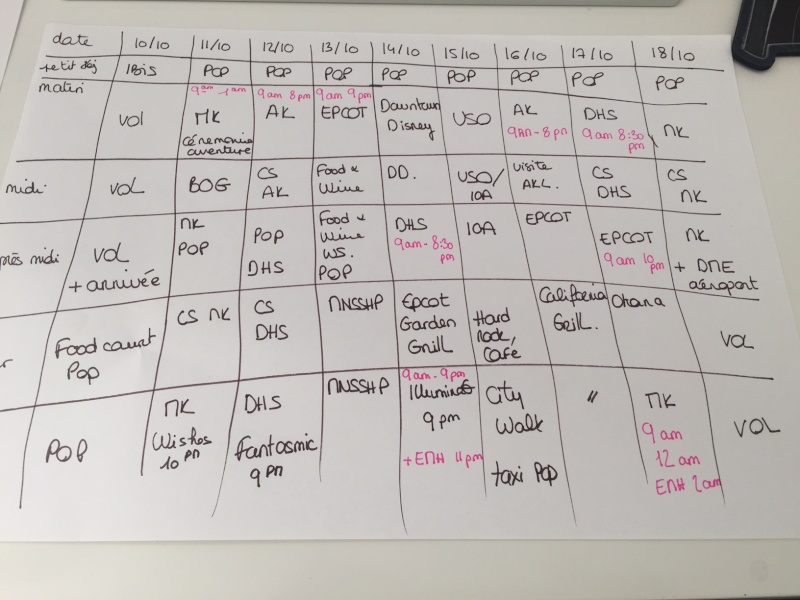 date 10/10 11/10 12/10 13/10 14/10 15/10 16/10 17/10 18/10
petit dej IBIS POP POP POP POP POP POP POP POP
matin 9am 1am 9am 8pm 9am 9pm
vol MK AK EPCOT Downtown USO AK DHS MK
cérémonie Disney 9am-8pm 9am 8:30
aventure pm
midi VOL BOG CS Food & DD. USO/ visite CS CS
AK Wine IOA AKL. DHS MK
près midi VOL MK POP Food & DHS IOA EPCOT EPCOT MK
+ arrivée POP DHS Wine 9am-8:30 9am 10 + DME
WS. pm pm aéroport
POP
r Food court CS MK CS MNSSHP Epcot Hard California Ohana VOL
Pop DHS Garden Rock Grill.
Grill Cafe
9am-9pm
POP MK DHS MNSSHP Illuminations City " MK VOL
Wishes Fantasmic 9pm Walk 9am
10 pm 9pm + EMH 11pm taxi Pop 12am
EMH 2am